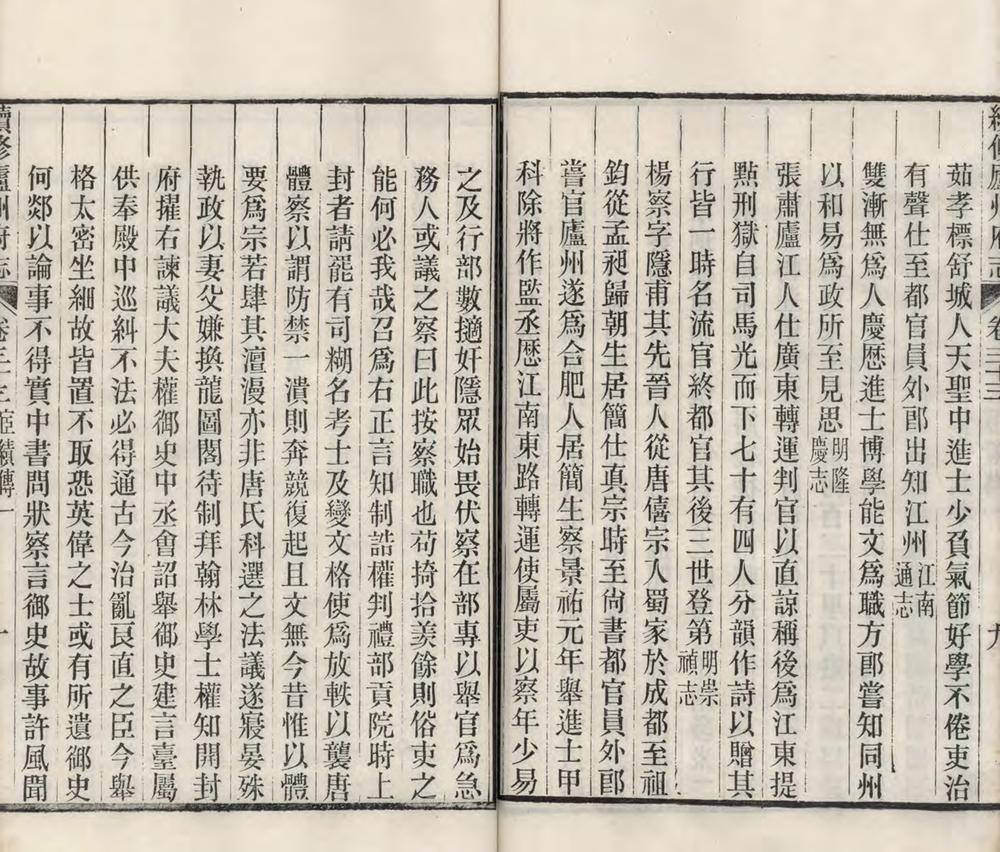 續修廬州府志 卷三十三 九
茹孝標舒城人天聖中進士少負氣節好學不倦吏治
有聲仕至都官員外郎出知江州江南通志
雙漸無爲人慶厯進士博學能文爲職方郎嘗知同州
以和易爲政所至見思明隆慶志
張肅廬江人仕廣東轉運判官以直諒稱後爲江東提
點刑獄自司馬光而下七十有四人分韻作詩以贈其
行皆一時名流官終都官其後三世登第明崇禎志
楊察字隱甫其先晉人從唐僖宗入蜀家於成都至祖
鈞從孟昶歸朝生居簡仕真宗時至尙書都官員外郎
嘗官廬州遂爲合肥人居簡生察景祐元年舉進士甲
科除將作監丞厯江南東路轉運使屬吏以察年少易
之及行部數擿奸隱眾始畏伏察在部專以舉官爲急
務人或議之察曰此按察職也苟掎拾羨餘則俗吏之
能何必我哉召爲右正言知制誥權判禮部貢院時上
封者請罷有司糊名考士及變文格使爲放軼以襲唐
體察以謂防禁一潰則奔競復起且文無今昔惟以體
要爲宗若肆其澶漫亦非唐氏科選之法議遂寢晏殊
執政以妻父嫌換龍圖閣待制拜翰林學士權知開封
府擢右諫議大夫權御史中丞會詔舉御史建言臺屬
供奉殿中巡糾不法必得通古今治亂良直之臣今舉
格太密坐細故皆置不取恐英偉之士或有所遺御史
何郯以論事不得實中書問狀察言御史故事許風聞
續修廬州府志 卷三十三 宦績傳一 十